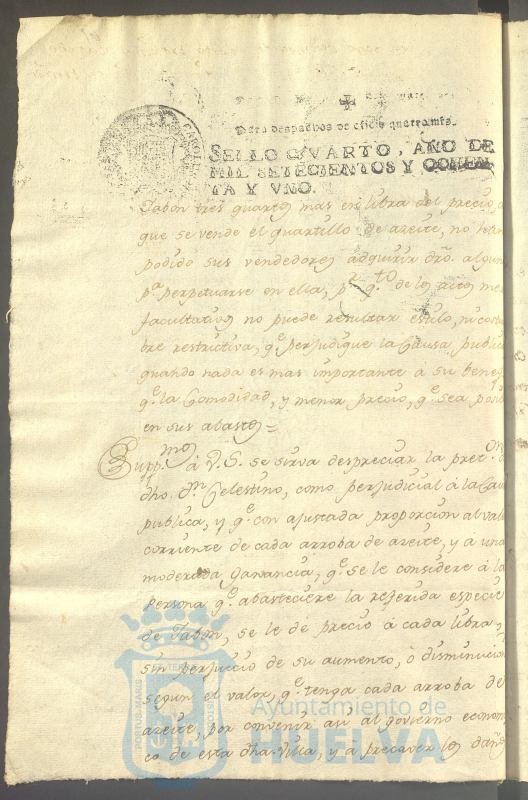 Para despachos de oficio quatro mrs.
SELLO QVARTO, AÑO DE
MIL SETECIENTOS Y OCHEN
TA Y VNO.
Jabon tres quartos mas en libra del precio, a
que se vende el quartillo de azeite, no han
podido sus vendedores adquirir dro. alguno
pa. perpetuarse en ella, pr. qto. de los actos me
facultativos no puede resultar estilo, ni costu
bre restrictiva, qe. perjudique la Causa publi
quando nada es mas importante â su benef
qe. la Comodidad, y menor precio, qe. sea posi
en sus abastos=
Suppmos. â V.S. se sirva despreciar la preton. d
dho. Dn. Celestino, como perjudicial â la Cau
publica, y qe. con ajustada proporcion al valo
corriente de cada arroba de azeite, y a una
moderada Ganancia, qe. se le considere â la
Persona qe. abasteciere la referida especie
de Jabon, se le de precio â cada libra, y
sin perjuicio de su aumento, ô disminucion
segun el valor, qe. tenga cada arroba de
azeite, por convenir asi al govierno econom
co de esta dha. Villa, y a precaver los daño
PORTUS MARIS
Ayuntamiento de
HUELVA